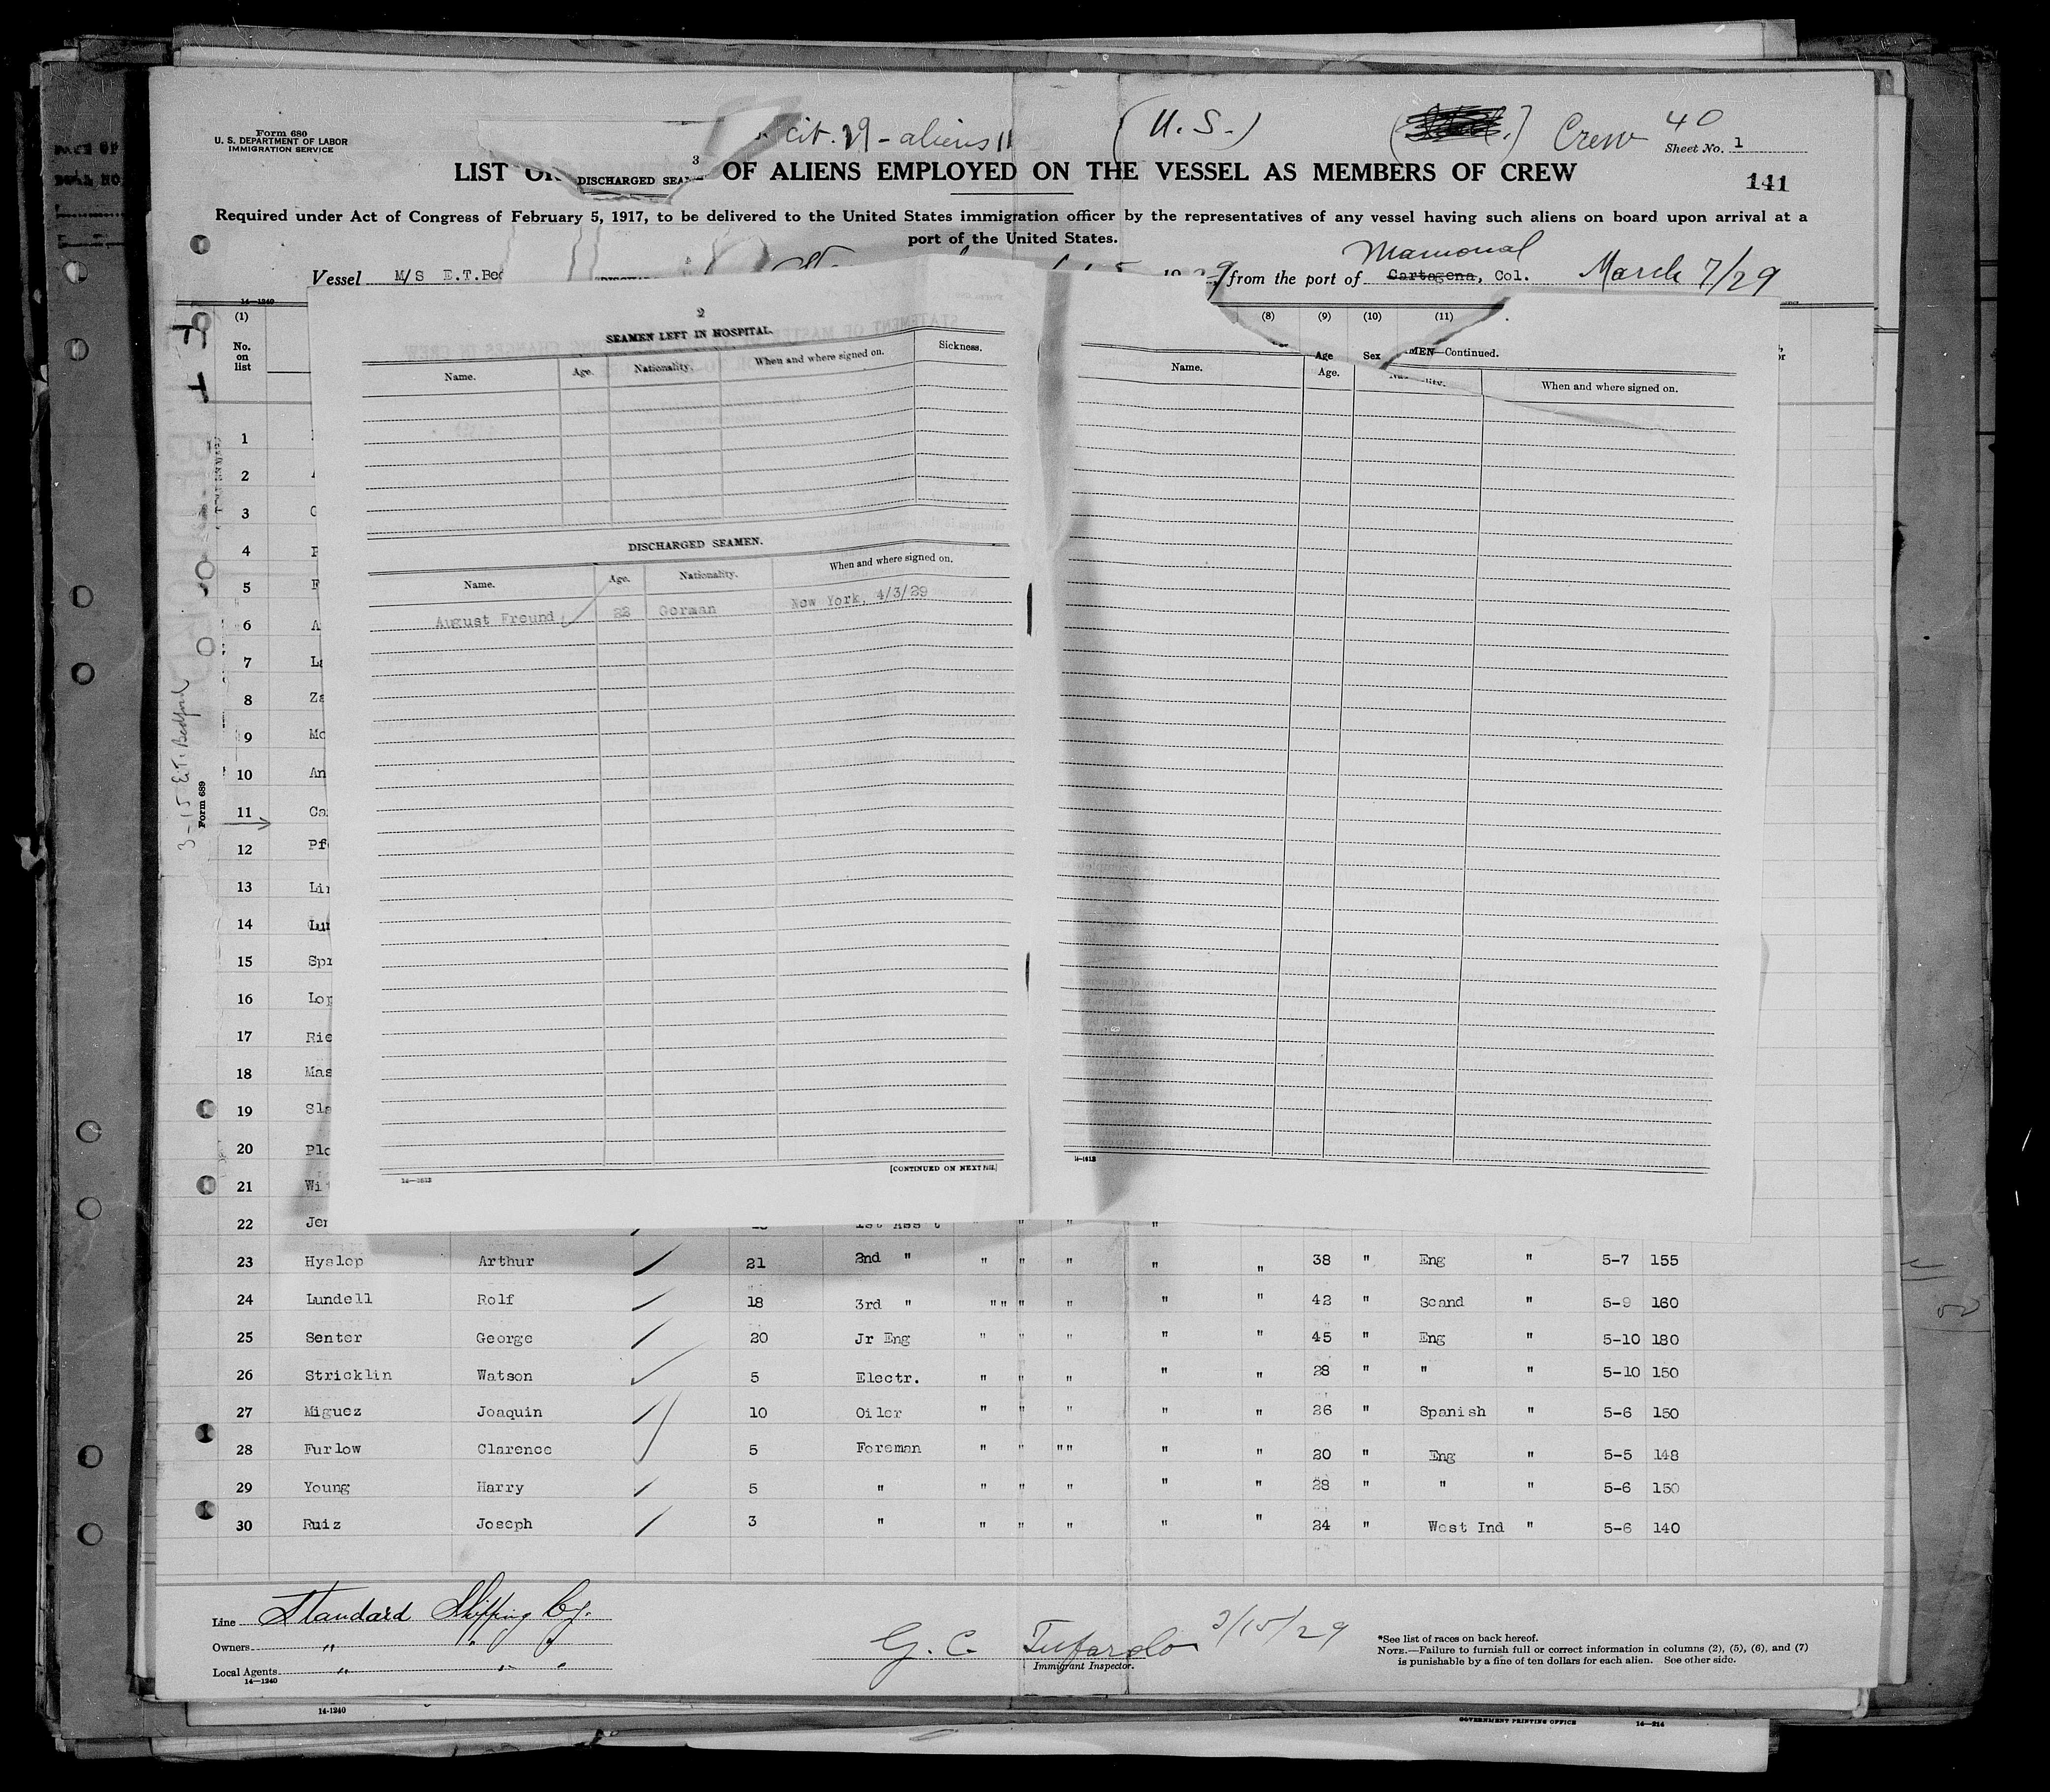 Form 680
U. S. DEPARTMENT OF LABOR
IMMIGRATION SERVICE
cit. 29 - aliens 11 (U. S.) Crew 40
Sheet No. 1
3
DISCHARGED
LIST OF ALIENS EMPLOYED ON THE VESSEL AS MEMBERS OF CREW
141
Required under Act of Congress of February 5, 1917, to be delivered to the United States immigration officer by the representatives of any vessel having such aliens on board upon arrival at a
port of the United States.
Mamonal
Vessel M/S E.T.Bed from the port of Cartagena, Col. March 7/29
14—1240
(1) (8) (9) (10) (11)
No.
on
list
Age Sex
2
SEAMEN LEFT IN HOSPITAL.
Name. Age. Nationality. When and where signed on. Sickness.
DISCHARGED SEAMEN.
Name. Age. Nationality. When and where signed on.
August Freund 22 German New York, 4/3/29
[CONTINUED ON NEXT PAGE.]
MEN—Continued.
Name. Age. When and where signed on.
3-15 E.T. Bedford
Form 689
1
2
3 G
4
5
6
7 La
8 Za
9 Mc
10 An
11 Ca
12 Pf
13 Lin
14 Lun
15 Spr
16 Lop
17 Rie
18 Mas
19 Sla
20 Plo
21 Wi
22 Jen 1st Ass't " " " "
23 Hyslop Arthur 21 2nd " " " " " " 38 " Eng " 5-7 155
24 Lundell Rolf 18 3rd " " " " " " " 42 " Scand " 5-9 160
25 Senter George 20 Jr Eng " " " " " 45 " Eng " 5-10 180
26 Stricklin Watson 5 Electr. " " " " " 28 " " " 5-10 150
27 Miguez Joaquin 10 Oiler " " " " " 26 " Spanish " 5-6 150
28 Furlow Clarence 5 Foreman " " " " " " 20 " Eng " 5-5 148
29 Young Harry 5 " " " " " " 28 " " " 5-6 150
30 Ruiz Joseph 3 " " " " " " 24 " West Ind " 5-6 140
Line Standard Shipping Co.
Owners " " "
Local Agents " " "
14—1240
G. C. 3/15/29
Immigrant Inspector.
*See list of races on back hereof.
NOTE.—Failure to furnish full or correct information in columns (2), (5), (6), and (7)
is punishable by a fine of ten dollars for each alien. See other side.
14-1240
GOVERNMENT PRINTING OFFICE 14—214